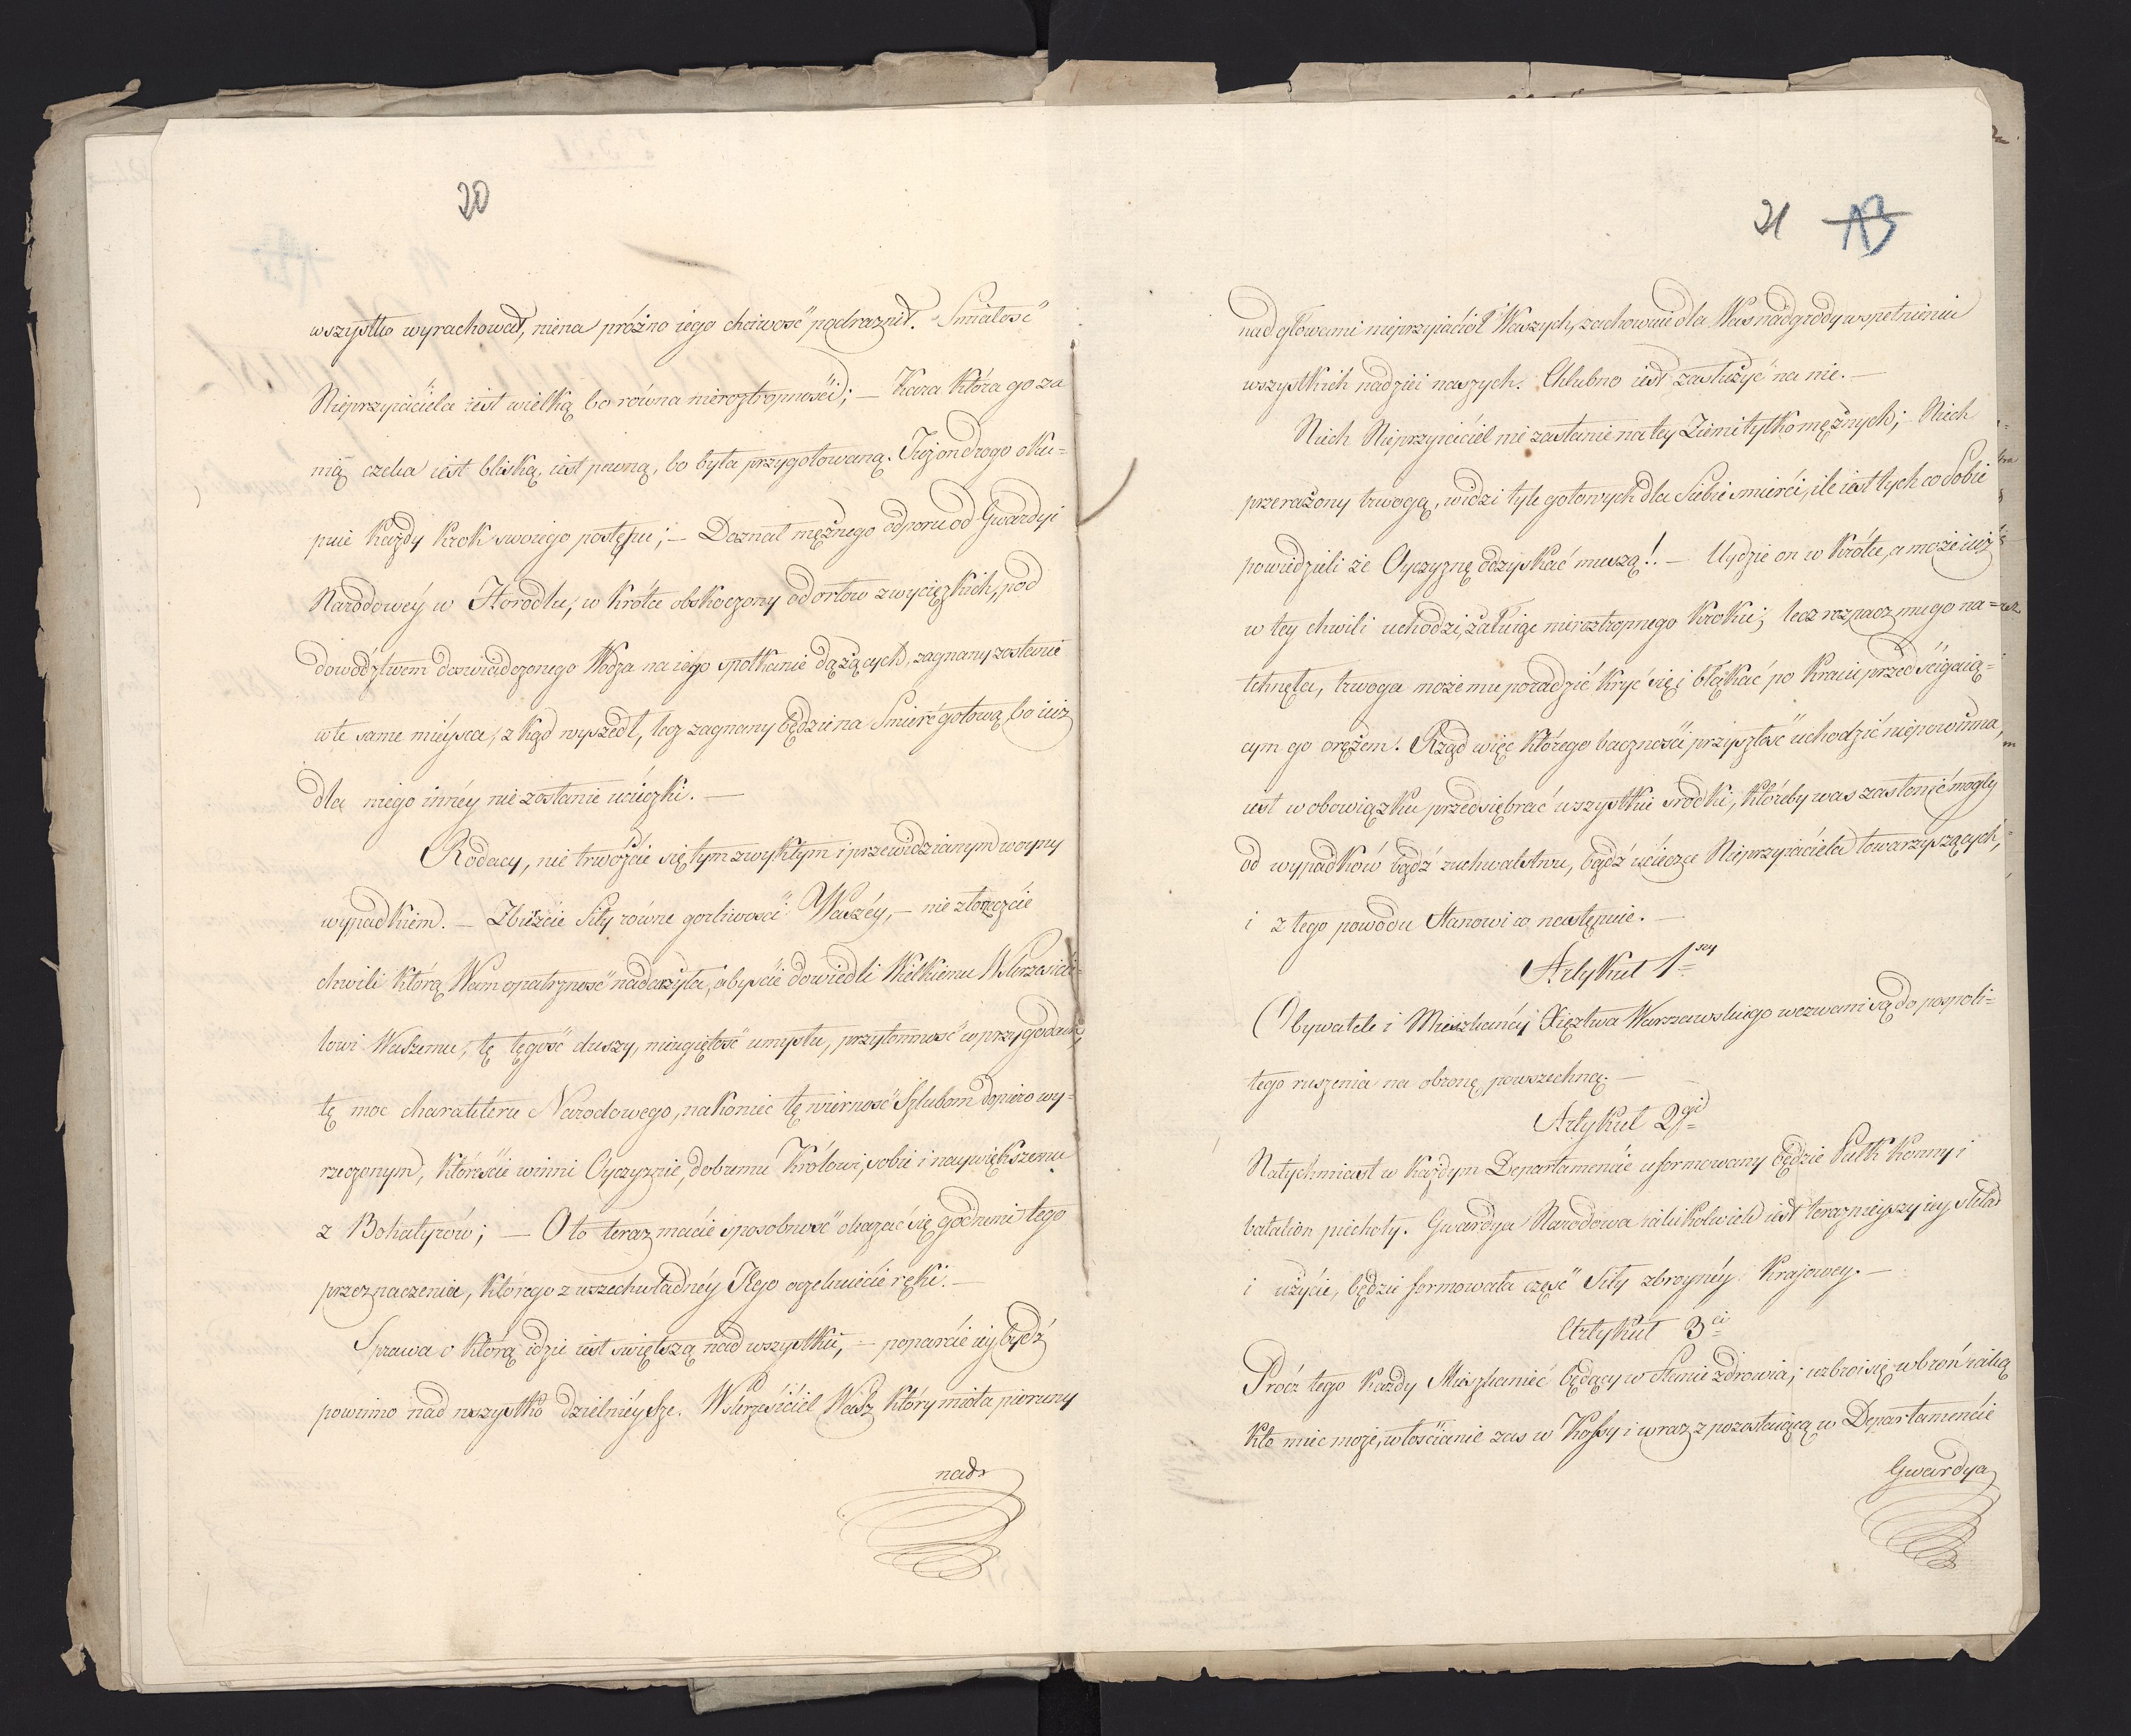 20
wszystko wyrachował, niena próżno iego chciwość podraznił. Smiałość
Nieprzyiaciela iest wielką bo równa nieroztropności; — Kara która go za
nią czeka iest bliską, iest pewną, bo była przygotowaną. Jużon drogo oku=
puie każdy krok swoiego postępu; — Doznał mężnego odporu od Gwardyi
Narodowéy w Horodlu, w krótce obskoczony od orłow zwycięzkich, pod
dowództwem doswiadczonego Wodza na iego spotkanie dążących, zagnany zostanie
w te same mieysca, z kąd wyszedł, lecz zagnany będzie na Smierć gotową bo iuż
dla niego innéy nie zostanie ucieczki. —
Rodacy, nie trwóżcie się tym zwykłym i przewidzianym woyny
wypadkiem. — Zbierzcie Siły równe gorliwości Waszéy, — nie złorzeczcie
chwili którą Wam opatrzność nadarzyła, abyście dowiedli Wielkiemu Wskrzesicie=
lowi Waszemu, tę tęgość duszy, nieugiętość umysłu, przytomność w przygodach,
tę moc charakteru Narodowego, nakoniec tę wierność Szlubom dopiero wy=
rzeczonym, któreście winni Oyczyznie, dobremu Królowi, sobie i naywiększemu
z Bohatyrów; — Oto teraz macie sposobność okazać się godnemi tego
przeznaczenia, którego z wszechwładnéy Jego oczekuiecie ręki. —
Sprawa o którą idzie iest swiętszą nad wszystkie, — poparcie iey bydź
powinno nad wszystko dzielnieysze. Wskrzesiciel Wasz który miota pioruny
nad
21 13
nad głowami nieprzyiaciół Waszych, zachowuie dla Was nadgrody w spełnieniu
wszystkich nadziei naszych. Chlubno iest zasłużyć na nie. —
Niech Nieprzyiaciel nie zastanie na tey Ziemi tylko mężnych; Niech
przerażony trwogą, widzi tyle gotowych dla Siebie smierci, ile iest tych co Sobie
powiedzieli że Oyczyznę odzyskać muszą!. — Uydzie on w krótce, a może iuż
w tey chwili uchodzi, żałuiąc nieroztropnego kroku; lecz rozpacz mu go na=
tchnęła, trwoga może mu poradzić kryć się i błąkać po kraiu przed ścigaią=
cym go orężem. Rząd więc którego baczności przyszłość uchodzić niepowinna,
iest w obowiązku przedsiębrać wszystkie srodki, któreby was zasłonić mogły
od wypadków bądź zuchwalstwu, bądź ucieczce Nieprzyiaciela towarzyszących,
i z tego powodu Stanowi co następuie. —
Artykuł 1szy
Obywatele i Mieszkańcy Xięztwa Warszawskiego wezwani są do pospoli=
tego ruszenia na obronę powszechną. —
Artykuł 2gi
Natychmiast w każdym Departamencie uformowany będzie Pułk konny i
batalion piechoty. Gwardya Narodowa iakikolwiek iest teraznieyszy iey skład
i użycie, będzie formowała część Siły zbroynéy Krajowey. —
Artykuł 3ci
Prócz tego każdy Mieszkaniec będący w Stanie zdrowia, uzbroi się w broń iaką
kto miec może, włościanie zas w Kossy i wraz z pozostaiącą w Departamencie
Gwardya